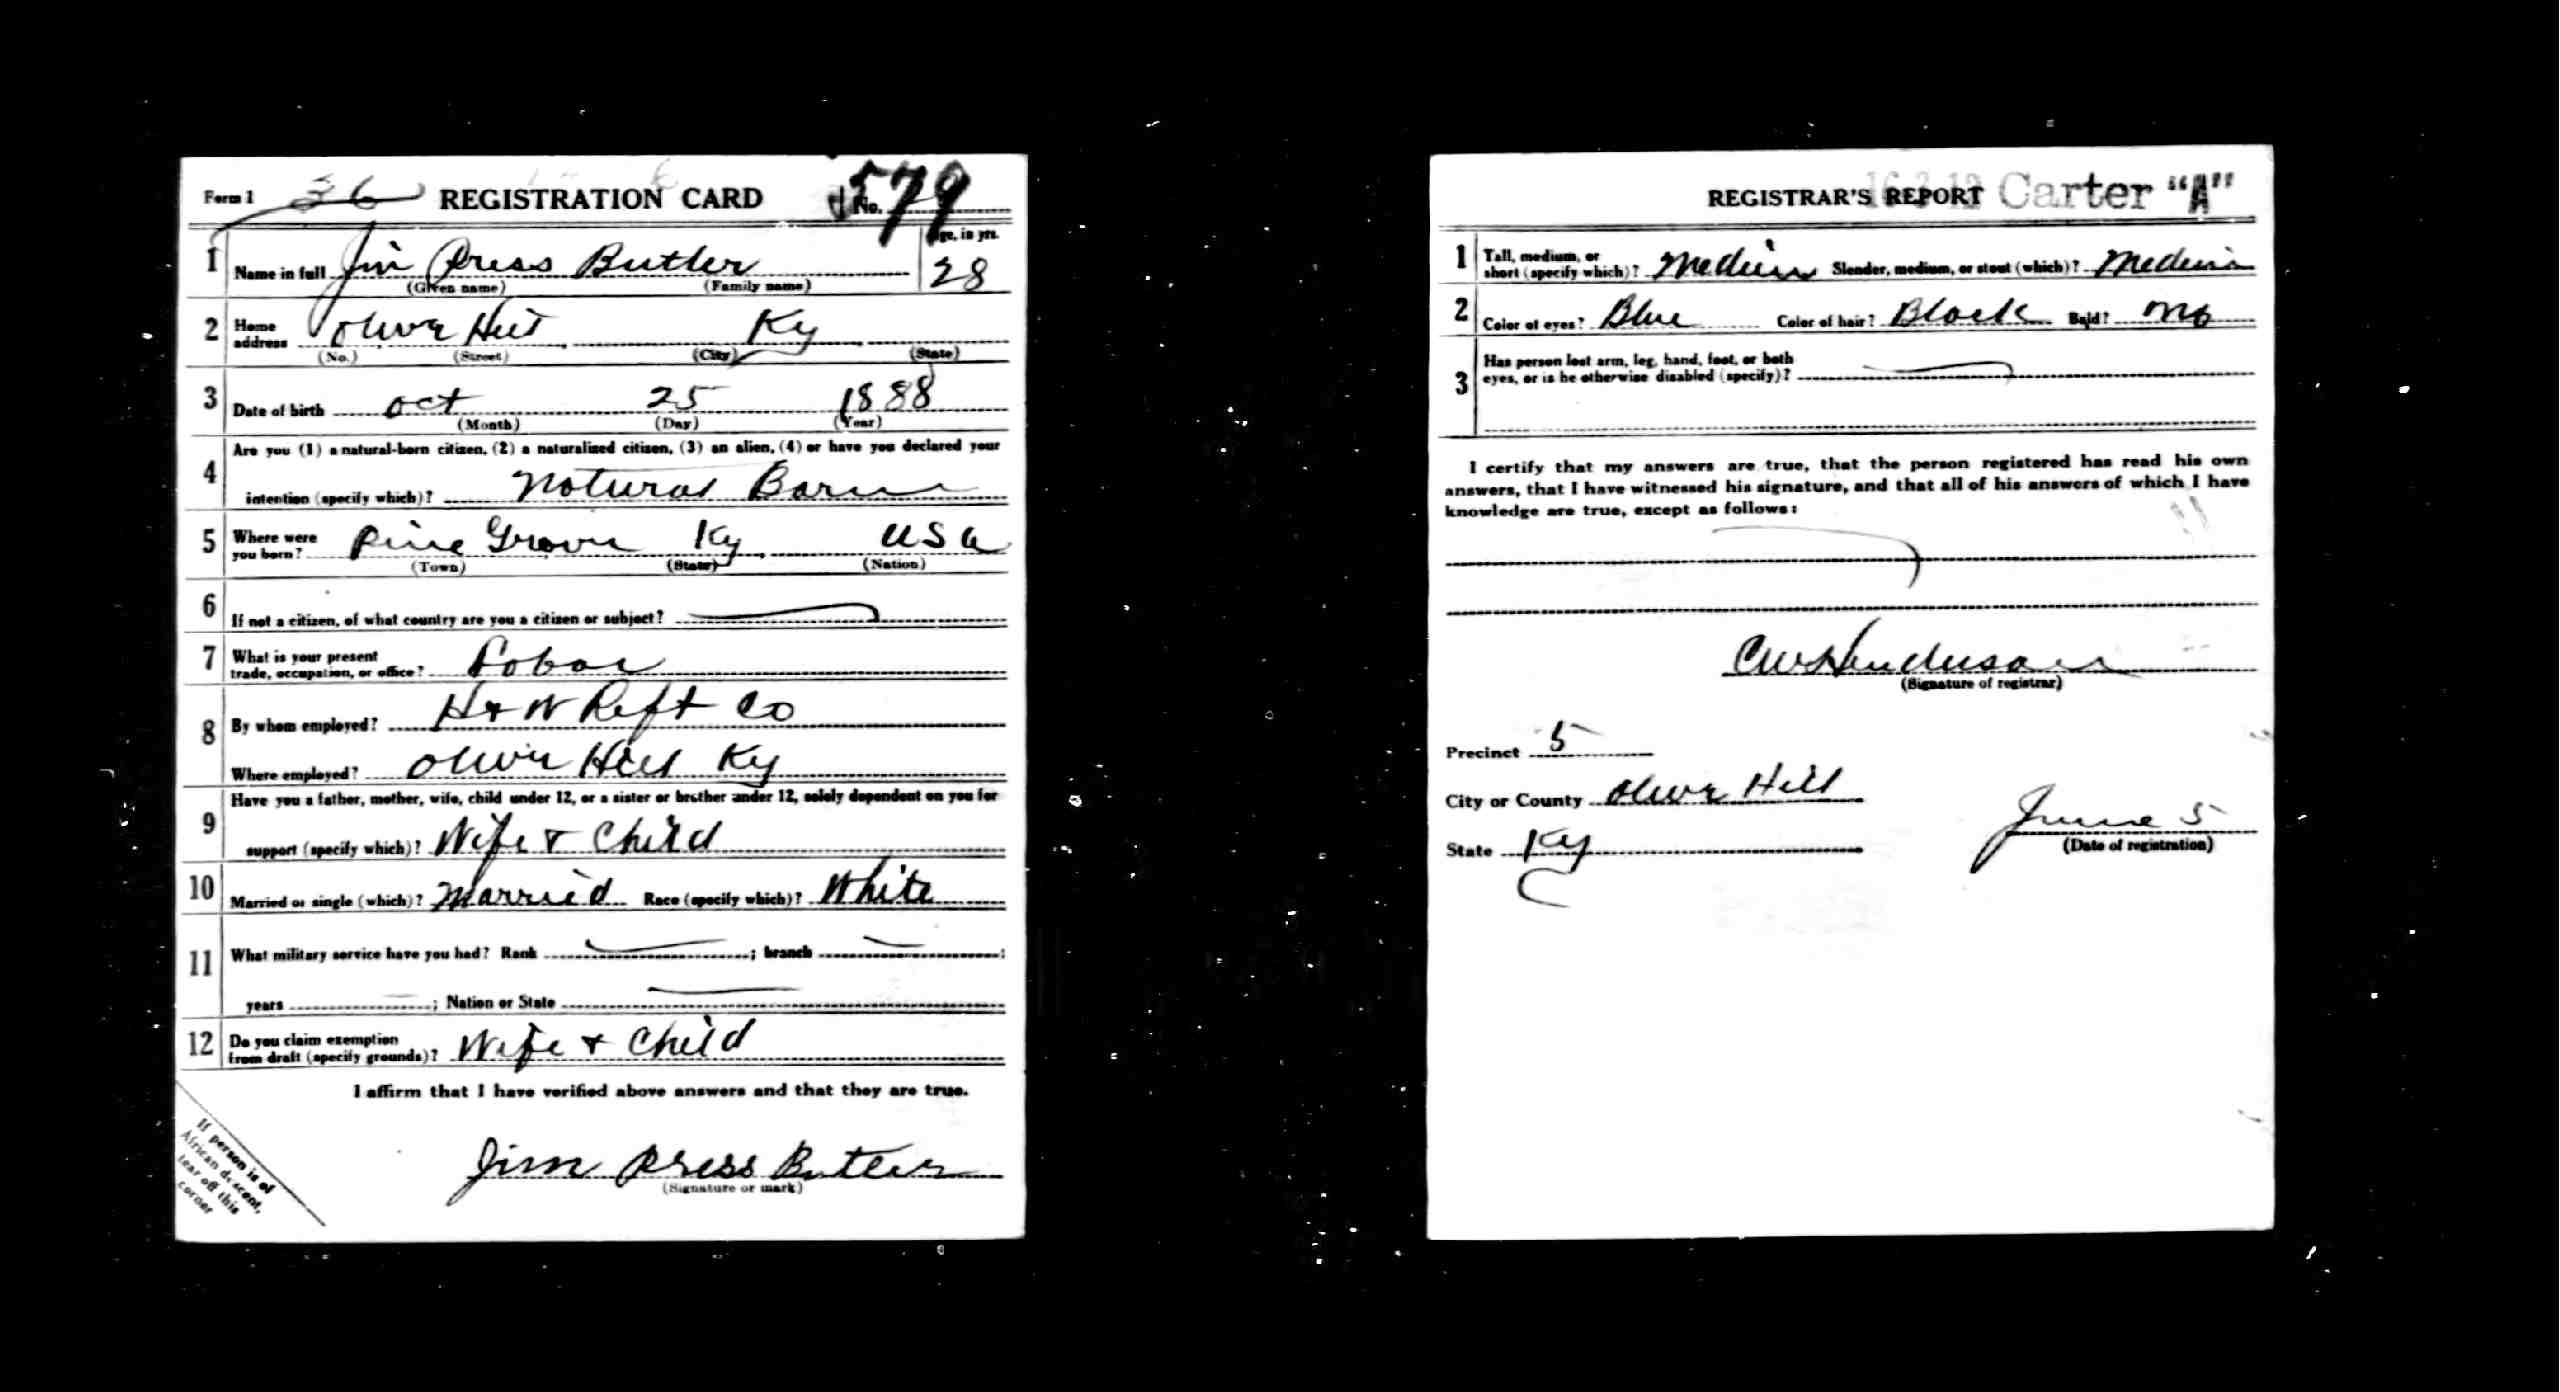 Form 1 36 REGISTRATION CARD No. 579
1 Name in full Jim Press Butler Age, in yrs. 28
(Given name) (Family name)
2 Home address Olive Hill Ky
(No.) (Street) (City) (State)
3 Date of birth Oct 25 1888
(Month) (Day) (Year)
4 Are you (1) a natural-born citizen, (2) a naturalized citizen, (3) an alien, (4) or have you declared your
intention (specify which)? Natural Born
5 Where were you born? Pine Grove Ky USA
(Town) (State) (Nation)
6 If not a citizen, of what country are you a citizen or subject?
7 What is your present trade, occupation, or office? Labor
8 By whom employed? H + W Reft Co
Where employed? Olive Hill Ky
9 Have you a father, mother, wife, child under 12, or a sister or brother under 12, solely dependent on you for
support (specify which)? Wife + Child
10 Married or single (which)? Married Race (specify which)? White
11 What military service have you had? Rank ; branch ;
years ; Nation or State
12 Do you claim exemption from draft (specify grounds)? Wife + Child
I affirm that I have verified above answers and that they are true.
Jim Press Butler
(Signature or mark)
If person is of
African descent,
tear off this
corner
REGISTRAR'S REPORT Carter "A"
1 Tall, medium, or short (specify which)? Medium Slender, medium, or stout (which)? Medium
2 Color of eyes? Blue Color of hair? Black Bald? No
3 Has person lost arm, leg, hand, foot, or both
eyes, or is he otherwise disabled (specify)?
I certify that my answers are true, that the person registered has read his own
answers, that I have witnessed his signature, and that all of his answers of which I have
knowledge are true, except as follows:
CW Henderson
(Signature of registrar)
Precinct 5
City or County Olive Hill
State Ky
June 5
(Date of registration)